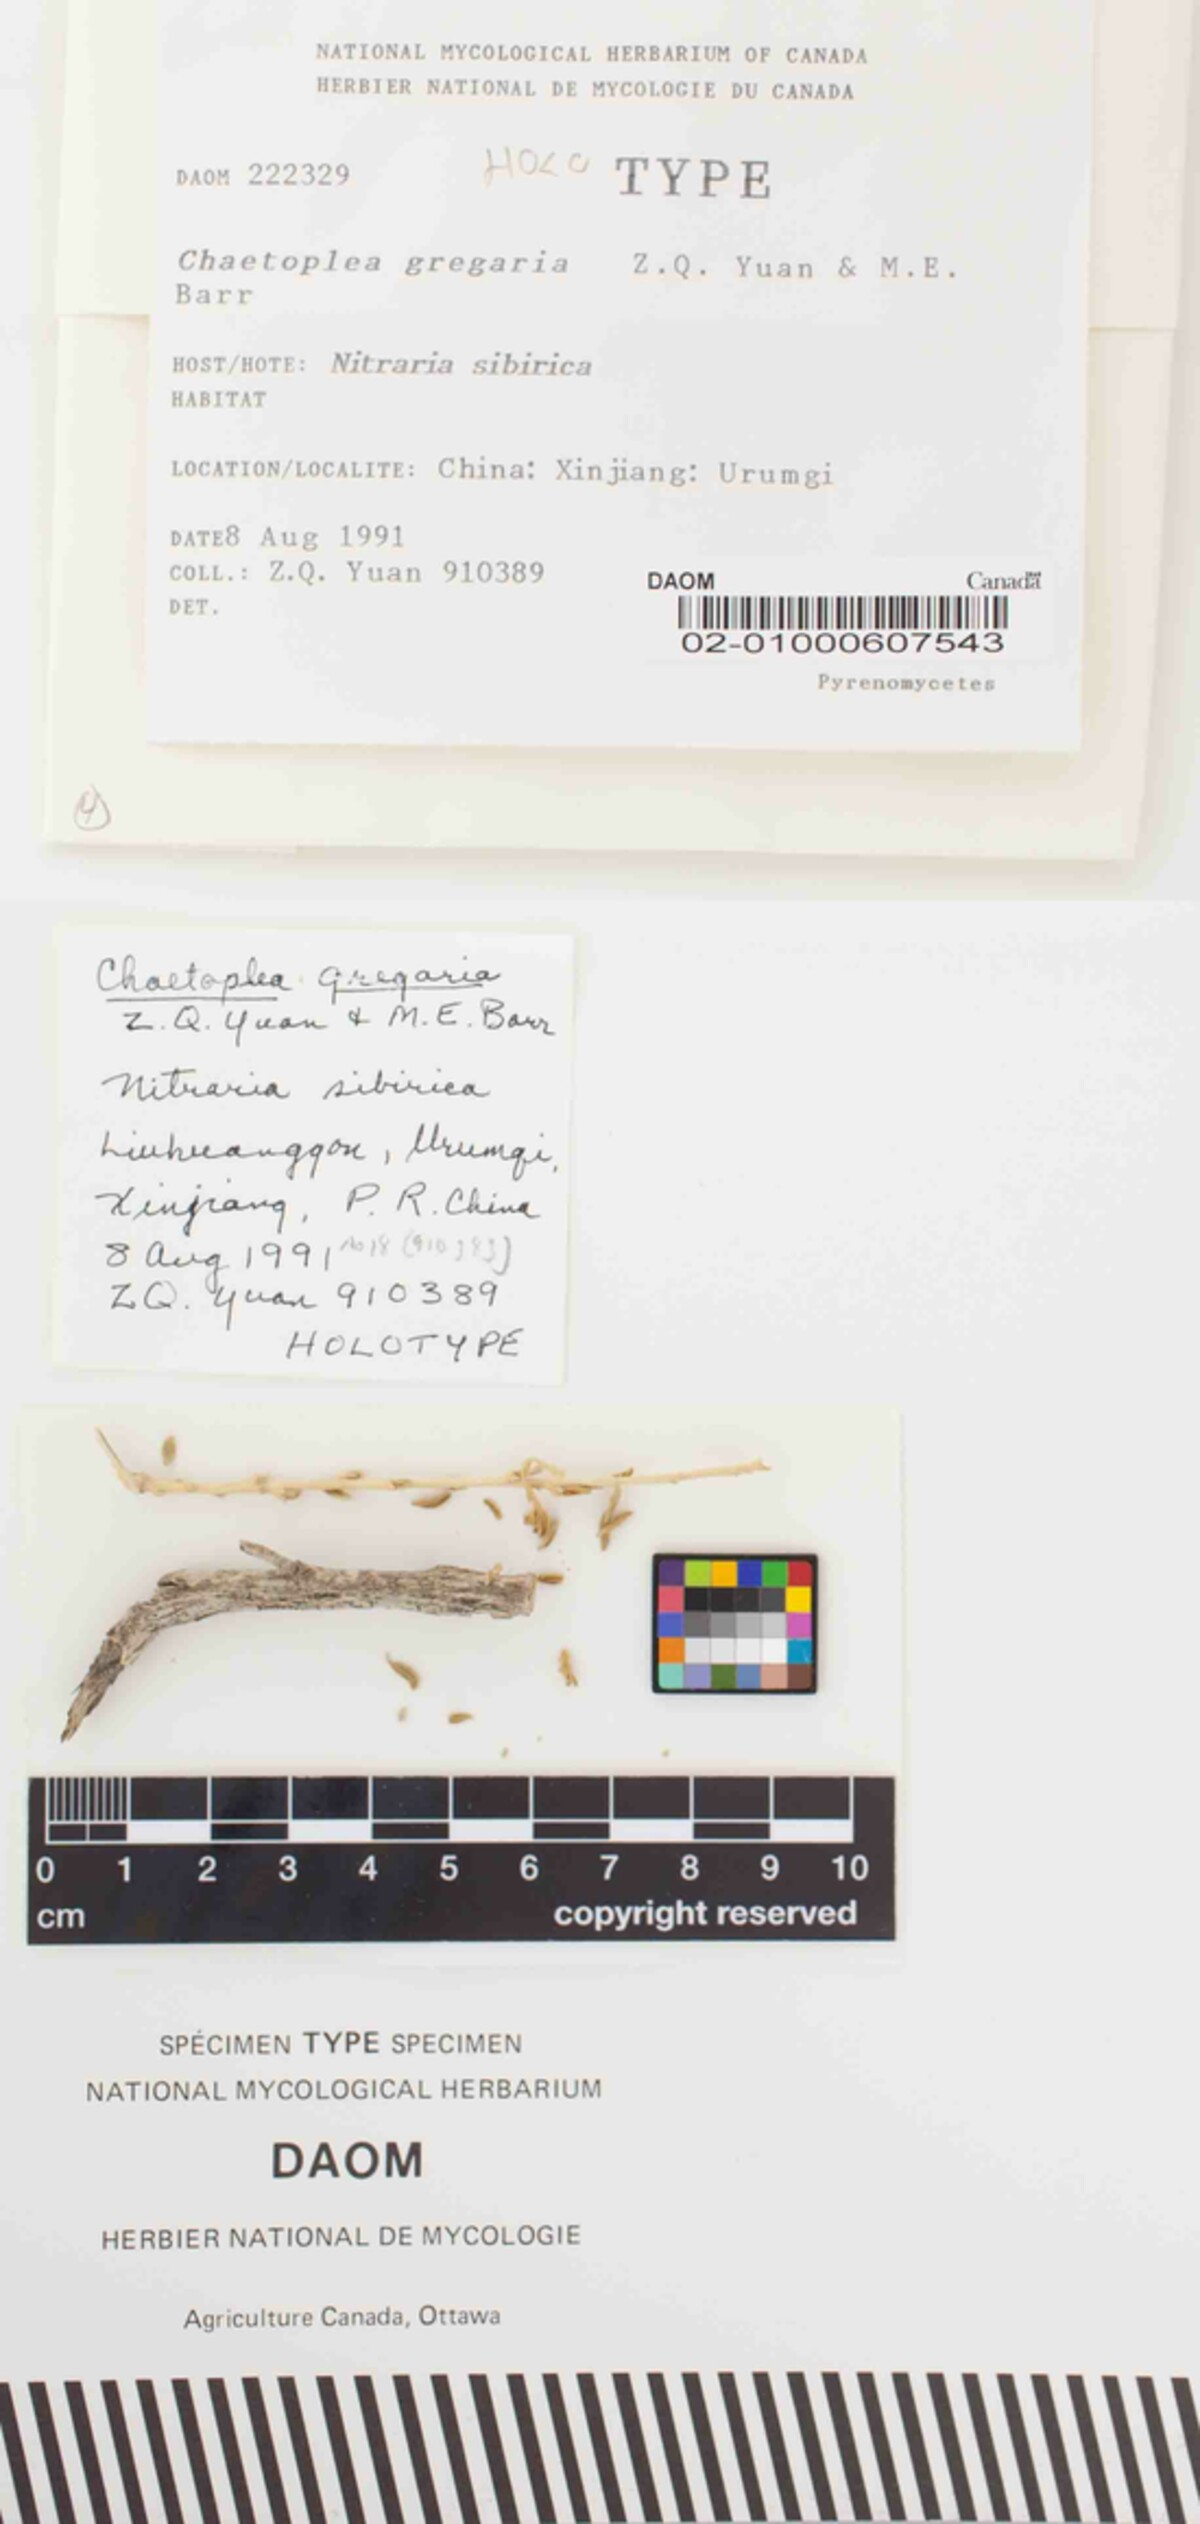 NATIONAL MYCOLOGICAL HERBARIUM OF CANADA
HERBIER NATIONAL DE MYCOLOGIE DU CANADA
DAOM 222329 HOLO TYPE
Chaetoplea gregaria Z.Q. Yuan & M.E.
Barr
HOST/HOTE: Nitraria sibirica
HABITAT
LOCATION/LOCALITE: China: Xinjiang: Urumgi
DATE8 Aug 1991
COLL.: Z.Q. Yuan 910389
DET.
DAOM Canada
02-01000607543
Pyrenomycetes
4
Chaetoplea gregaria
Z.Q. Yuan & M.E. Barr
Nitraria sibirica
Liuhuanggou, Urumqi,
Xinjiang, P.R. China
8 Aug 1991
Z.Q. Yuan 910389
HOLOTYPE
0 1 2 3 4 5 6 7 8 9 10
cm copyright reserved
SPÉCIMEN TYPE SPECIMEN
NATIONAL MYCOLOGICAL HERBARIUM
DAOM
HERBIER NATIONAL DE MYCOLOGIE
Agriculture Canada, Ottawa